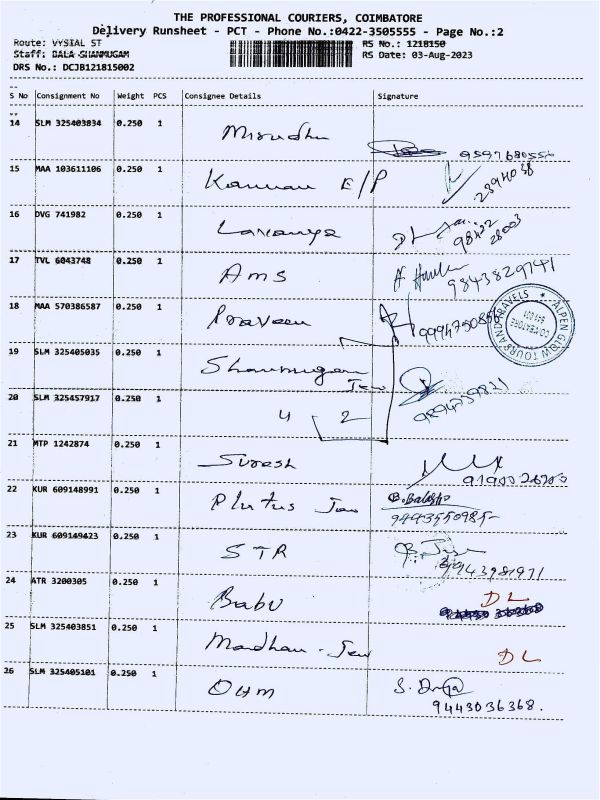 THE PROFESSIONAL COURIERS, COIMBATORE
Delivery Runsheet - PCT - Phone No.:0422-3505555 - Page No.:2
Route: VYSIAL ST RS No.: 1218150
Staff: BALA SHANMUGAM RS Date: 03-Aug-2023
DRS No.: DCJB121815002
S No Consignment No Weight PCS Consignee Details Signature
14 SLM 325403834 0.250 1 Mirudhu
15 MAA 103611106 0.250 1 Kannan E/P
16 DVG 741982 0.250 1 Lavanya 98422 28003
17 TVL 6043748 0.250 1 AMS 9843829741
18 MAA 570386587 0.250 1 Praveen
ALPEN GLOW TOURS AND TRAVELS
COIMBATORE
641 001
19 SLM 325405035 0.250 1 Shanmugam Jew
20 SLM 325457917 0.250 1 4 2 9894739821
21 MTP 1242874 0.250 1 Suresh
22 KUR 609148991 0.250 1 Plutus Jew
9443550985
23 KUR 609149423 0.250 1 STR 9943981971
24 ATR 3200305 0.250 1 Babu DL
25 SLM 325403851 0.250 1 Madhan - Jew DL
26 SLM 325405101 0.250 1 OHM
9443036368.